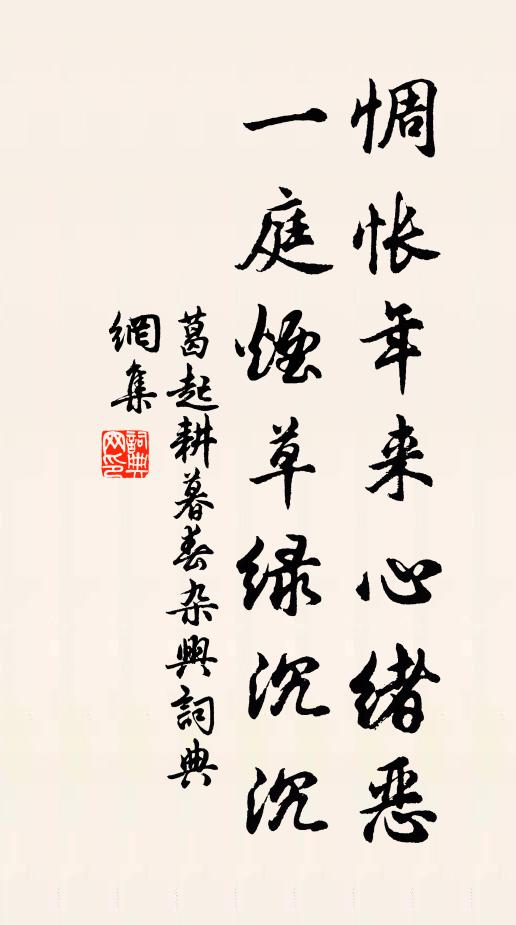 惆怅年来心绪恶
一庭煙草绿沉沉
葛起耕暮春杂興詞典
網集
詞典
网印